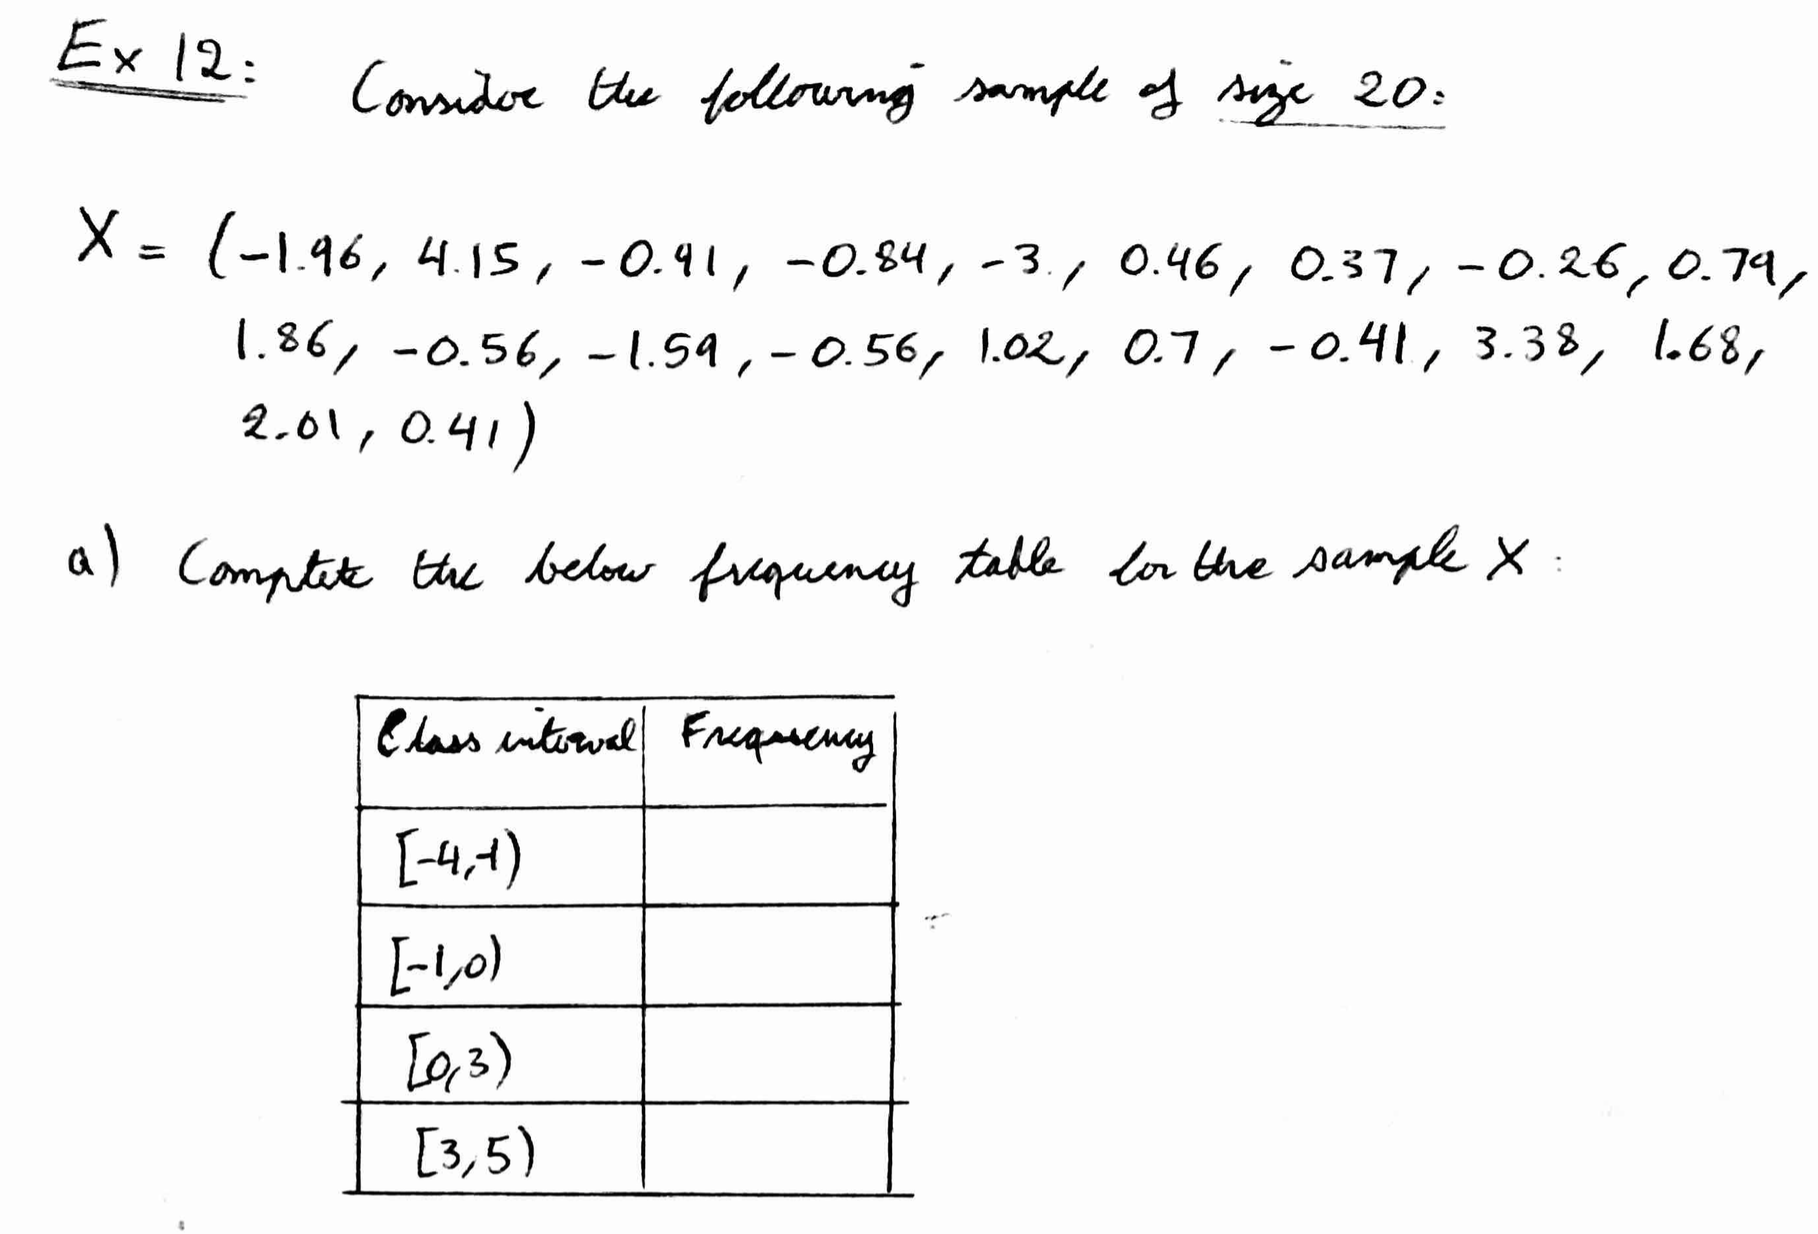 Ex 12: Consider the following sample of size 20:
X = (-1.96, 4.15, -0.91, -0.84, -3., 0.46, 0.37, -0.26, 0.79,
1.86, -0.56, -1.59, -0.56, 1.02, 0.7, -0.41, 3.38, 1.68,
2.01, 0.41)
a) Complete the below frequency table for the sample X:
Class interval Frequency
[-4,-1)
[-1,0)
[0,3)
[3,5)